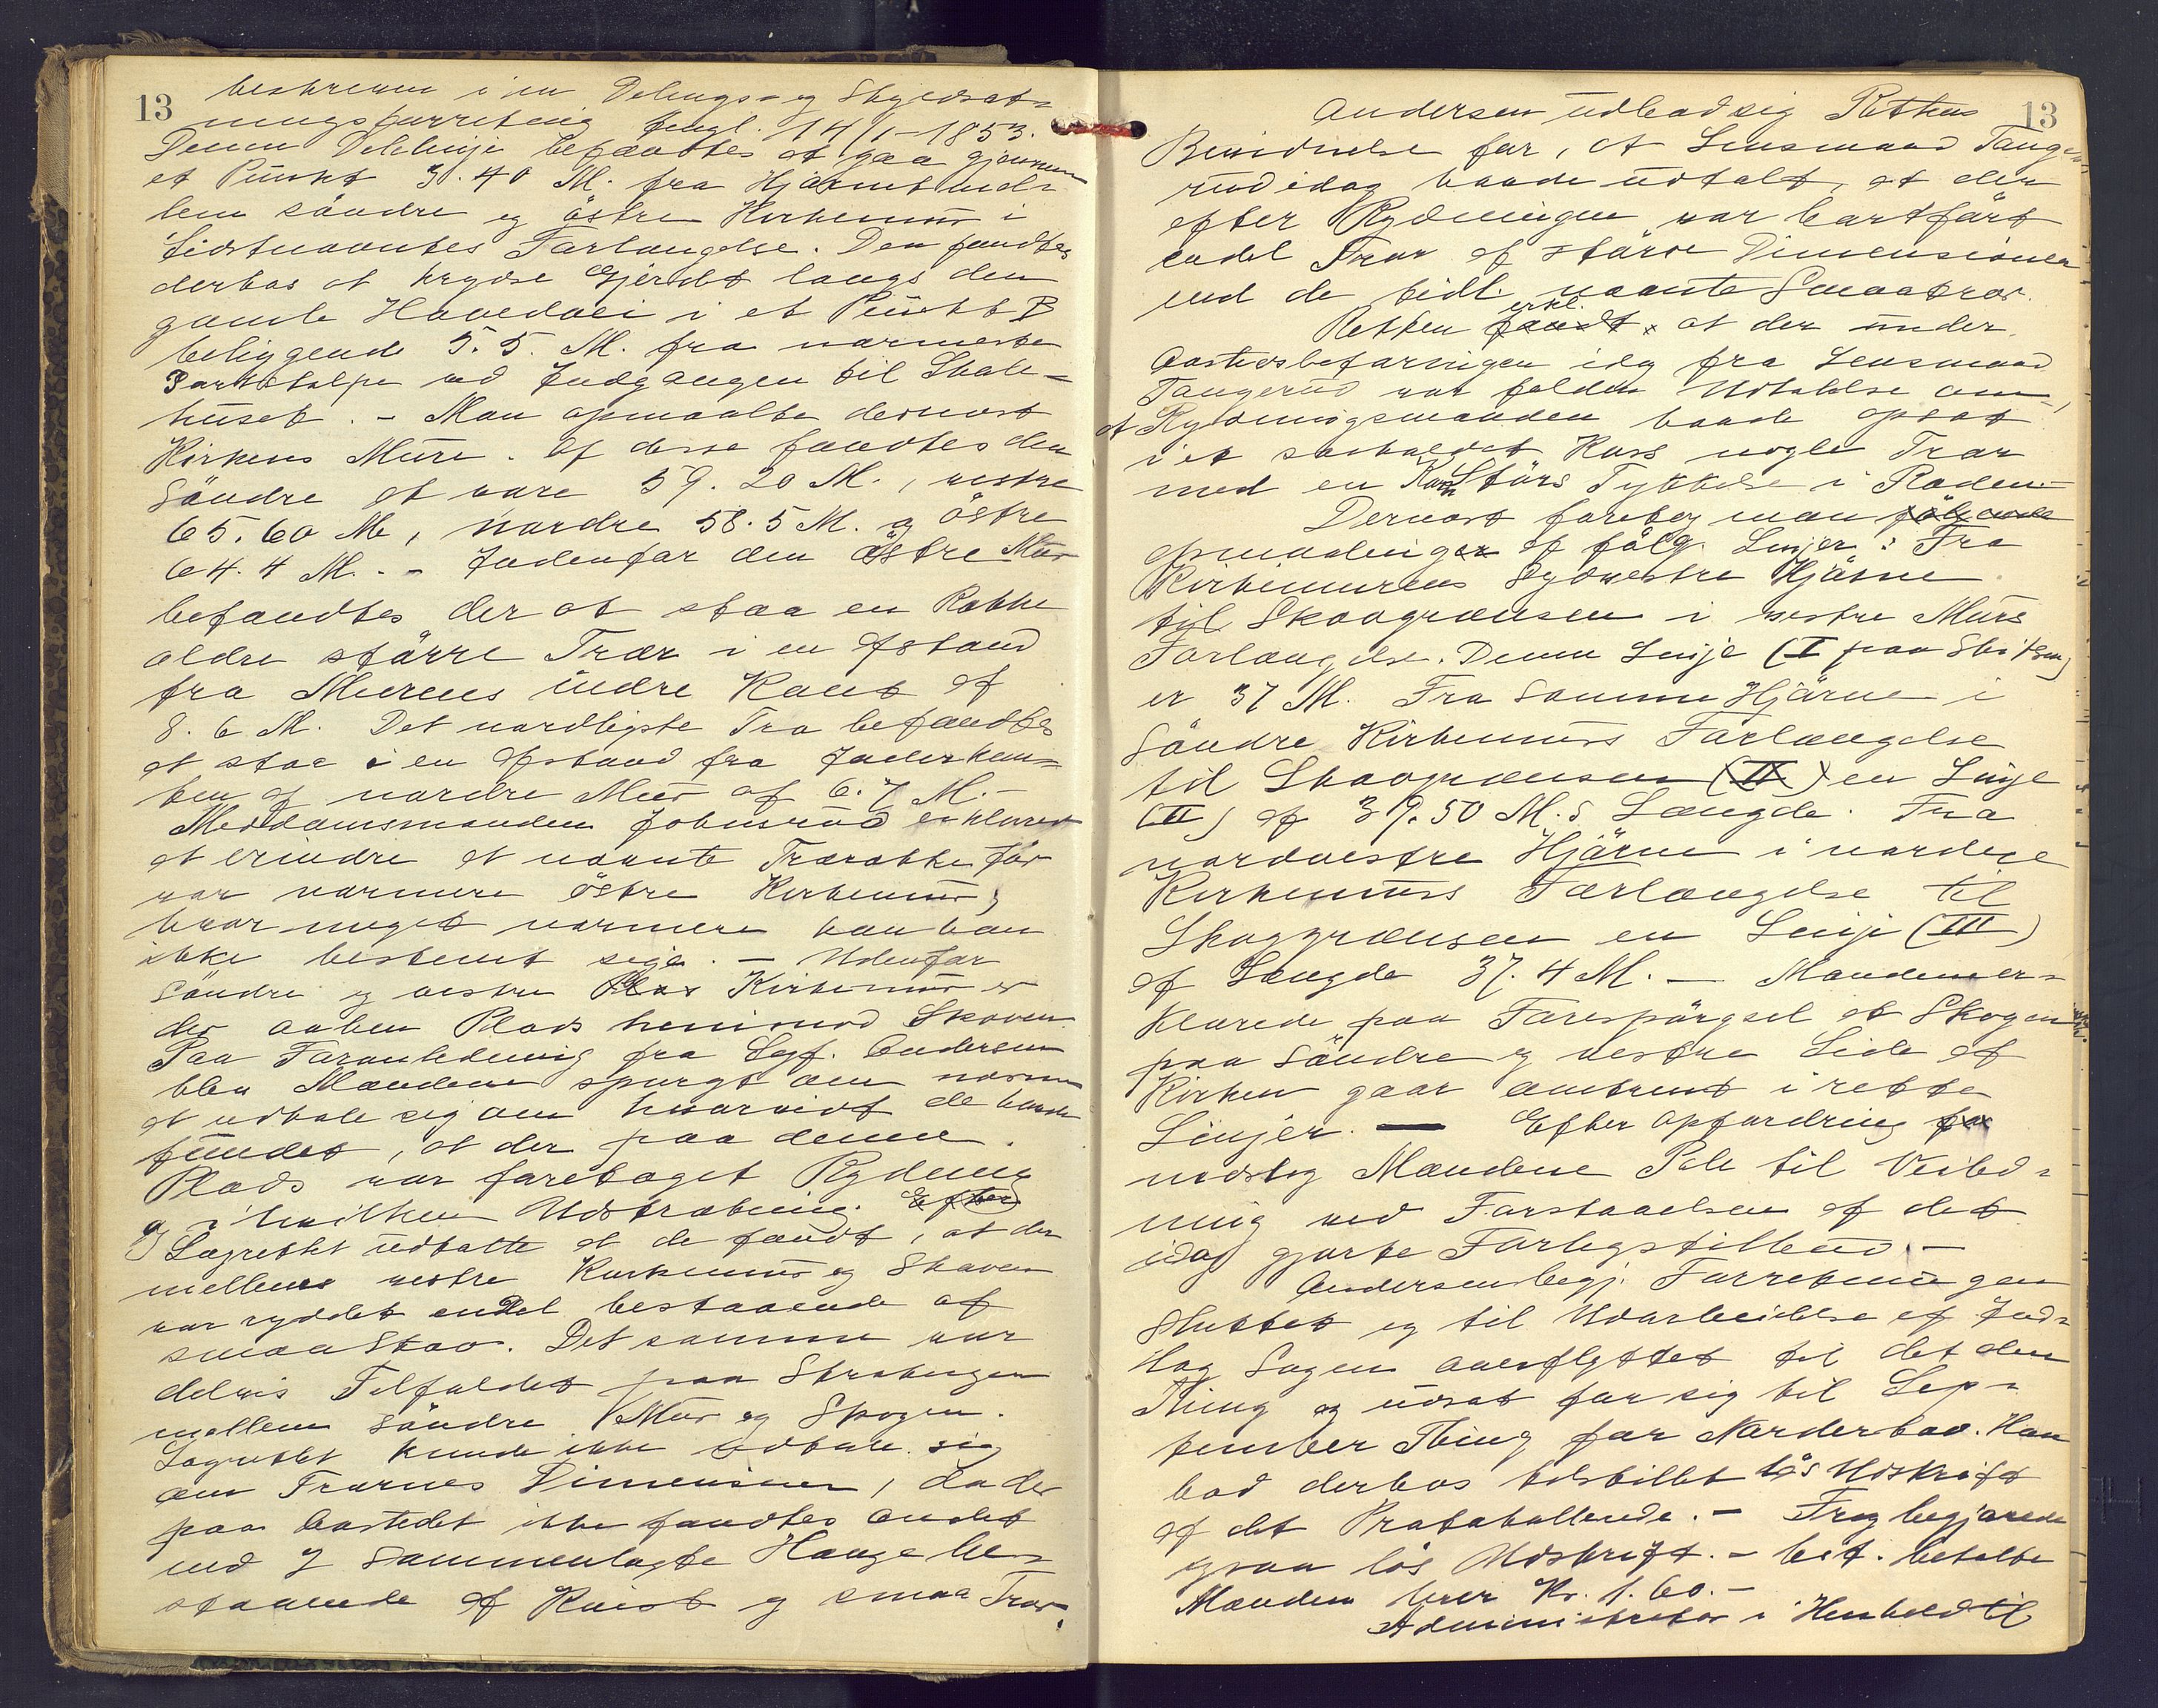 13
beskreven i en Delings- og Skyldsæt-
ningsforretning tingl. 14/1-1853.
Denne Delelinje befandtes at gaa gjennem
et Punkt 3.40 M. fra Hjørnet mel-
lem søndre og østre Kirkemur i
sidstnævntes Forlængelse. Den fandtes
derhos at krydse Gjerdet langs den
gamle Hovedvei i et Punkt B
beliggende 5.5. M. fra nærmeste
Portstolpe ved Indgangen til Skole-
huset. - Man opmaalte dernæst
Kirkens Mure. Af disse fandtes den
Søndre at være 59.20 M., vestre
65.60 M., nordre 58.5 M. og østre
64.4 M. - Indenfor den østre Mur
befandtes der at staa en Række
ældre større Trær i en Afstand
fra Murens indre Kant af
8.6 M. Det nordligste Træ befandtes
at staa i en Afstand fra Inderkan-
ten af nordre Mur af 6.7 M. -
Meddomsmanden Johnsrud erklæret
at erindre at nævnte Trærække før
var nærmere østre Kirkemur,
hvor meget nærmere kan han
ikke bestemt sige. - Udenfor
Søndre og vestre Kirkemur er
der aaben Plads henimod Skoven.
Paa Foranledning fra Sagf. Andersen
blev Mændene spurgt om
at udtale sig om hvorvidt de havde
fundet, at der paa denne
Plads var foretaget Rydning
og i hvilken Udstrækning. Efter
Lagrettet udtalte at de fandt, at der
mellem vestre Kirkemur og Skoven
var ryddet endel bestaaende af
smaaskov. Det samme var
delvis Tilfældet paa Strækningen
mellem Søndre Mur og Skogen.
Lagrettet kunde ikke udtale sig
om Trærnes Dimensioner, da der
paa Aastedet ikke fandtes andet
end 7 sammenlagte Hauge be-
staaende af Kvist og smaa Trær.
13
Andersen udbad sig Rettens
Bevidnelse for, at Lensmand Tange-
rud idag havde udtalt, at der
efter Rydningen var bortført
endel Trær af større Dimensioner
end de tidl. nævnte Smaatrær.
erkl.
Retten fandt at der under
Aastedsbefaringen idag fra Lensmand
Tangerud var falden Udtalelse om,
at Rydningsmanden havde opsat
i et saakaldet Kors nogle Trær
med en Størs Tykkelse i Roden -
Dernæst foretog man følgende
opmaalinger af følg. Linjer: Fra
Kirkemurens Sydvestre Hjørne
til Skovgrænsen i vestre Murs
Forlængelse. Denne Linje (I paa Skitsen)
er 37 M. Fra samme Hjørne i
Søndre Kirkemurs Forlængelse
til Skovgrænsen (II) en Linje
(II) af 39.50 M.s Længde. Fra
nordvestre Hjørne i nordre
Kirkemurs Forlængelse til
Skoggrænsen en Linje (III)
af Længde 37.4 M. - Mændene er-
klærede paa Forespørgsel at Skogen
paa Søndre og vestre Side af
Kirken gaar omtrent i rette
Linjer. — Efter Opfordring fra
nedslog Mændene Pele til Veiled-
ning ved Forstaaelsen af det
idag gjorte Forligstilbud. -
Andersen begj. Forretningen
Sluttet og til Udarbeidelse af Ind-
læg Sagen overflyttet til det alm
Thing og udsat for sig til Sep-
tember Thing for Norderhov. Han
bad derhos tilstillet løs Udskrift
af det Protokollerede. - Frog begjærede
ogsaa løs Udskrift. - Cit. betalte
Mændene hver Kr. 1.60. -
Administrator i Henhold til